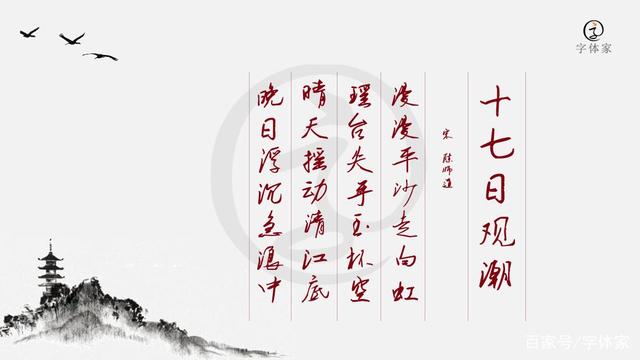 十七日观潮
宋 陈师道
漫漫平沙走白虹
瑶台失手玉杯空
晴天摇动清江底
晚日浮沉急浪中
字体家
百家号/字体家